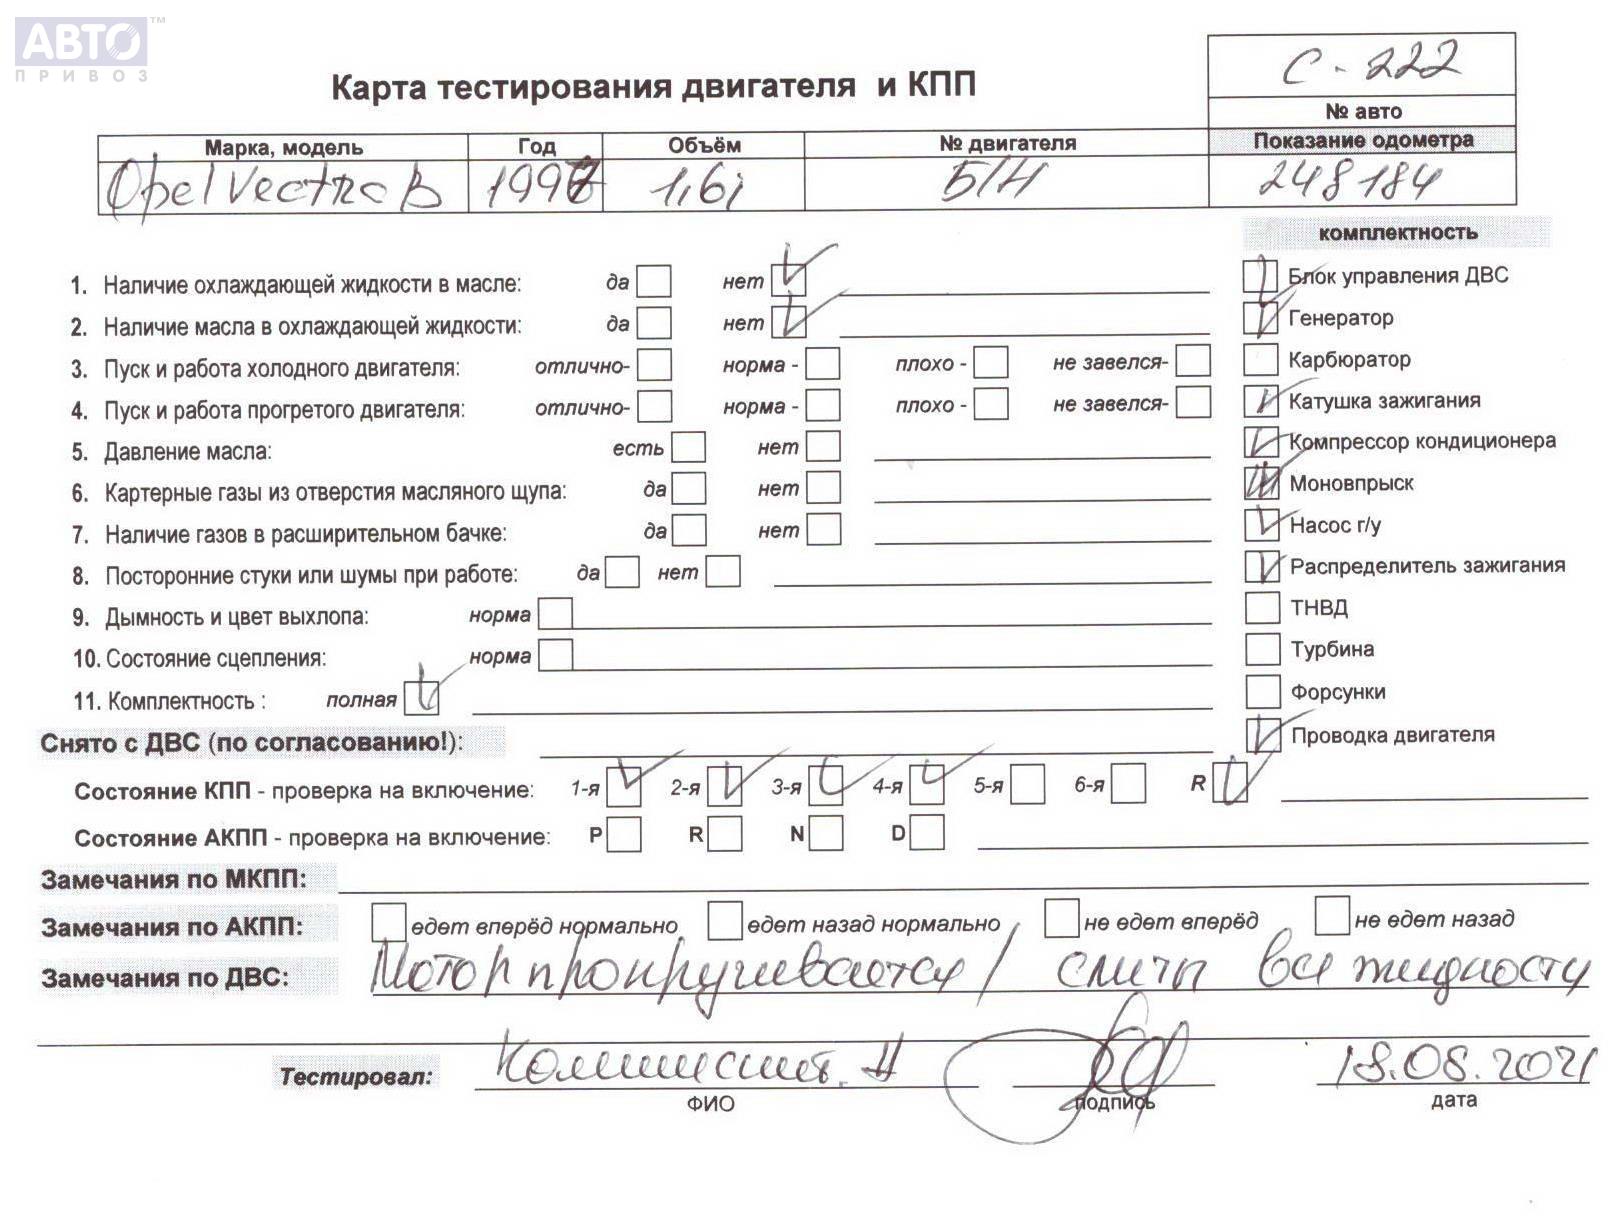 АВТО™
ПРИВОЗ
С-222
Карта тестирования двигателя и КПП
№ авто
Марка, модель Год Объём № двигателя Показание одометра
Opel Vectra B 1997 1,6i Б/Н 248184
комплектность
1. Наличие охлаждающей жидкости в масле: да нет
Блок управления ДВС
2. Наличие масла в охлаждающей жидкости: да нет
Генератор
3. Пуск и работа холодного двигателя: отлично- норма - плохо - не завелся-
Карбюратор
4. Пуск и работа прогретого двигателя: отлично- норма - плохо - не завелся-
Катушка зажигания
5. Давление масла: есть нет
Компрессор кондиционера
6. Картерные газы из отверстия масляного щупа: да нет
Моновпрыск
7. Наличие газов в расширительном бачке: да нет
Насос г/у
8. Посторонние стуки или шумы при работе: да нет
Распределитель зажигания
9. Дымность и цвет выхлопа: норма
ТНВД
10. Состояние сцепления: норма
Турбина
11. Комплектность : полная
Форсунки
Снято с ДВС (по согласованию!):
Проводка двигателя
Состояние КПП - проверка на включение: 1-я 2-я 3-я 4-я 5-я 6-я R
Состояние АКПП - проверка на включение: P R N D
Замечания по МКПП:
Замечания по АКПП: едет вперёд нормально едет назад нормально не едет вперёд не едет назад
Замечания по ДВС: Мотор прокручивается / слиты все жидкости
Тестировал: 18.08.2021
ФИО подпись дата